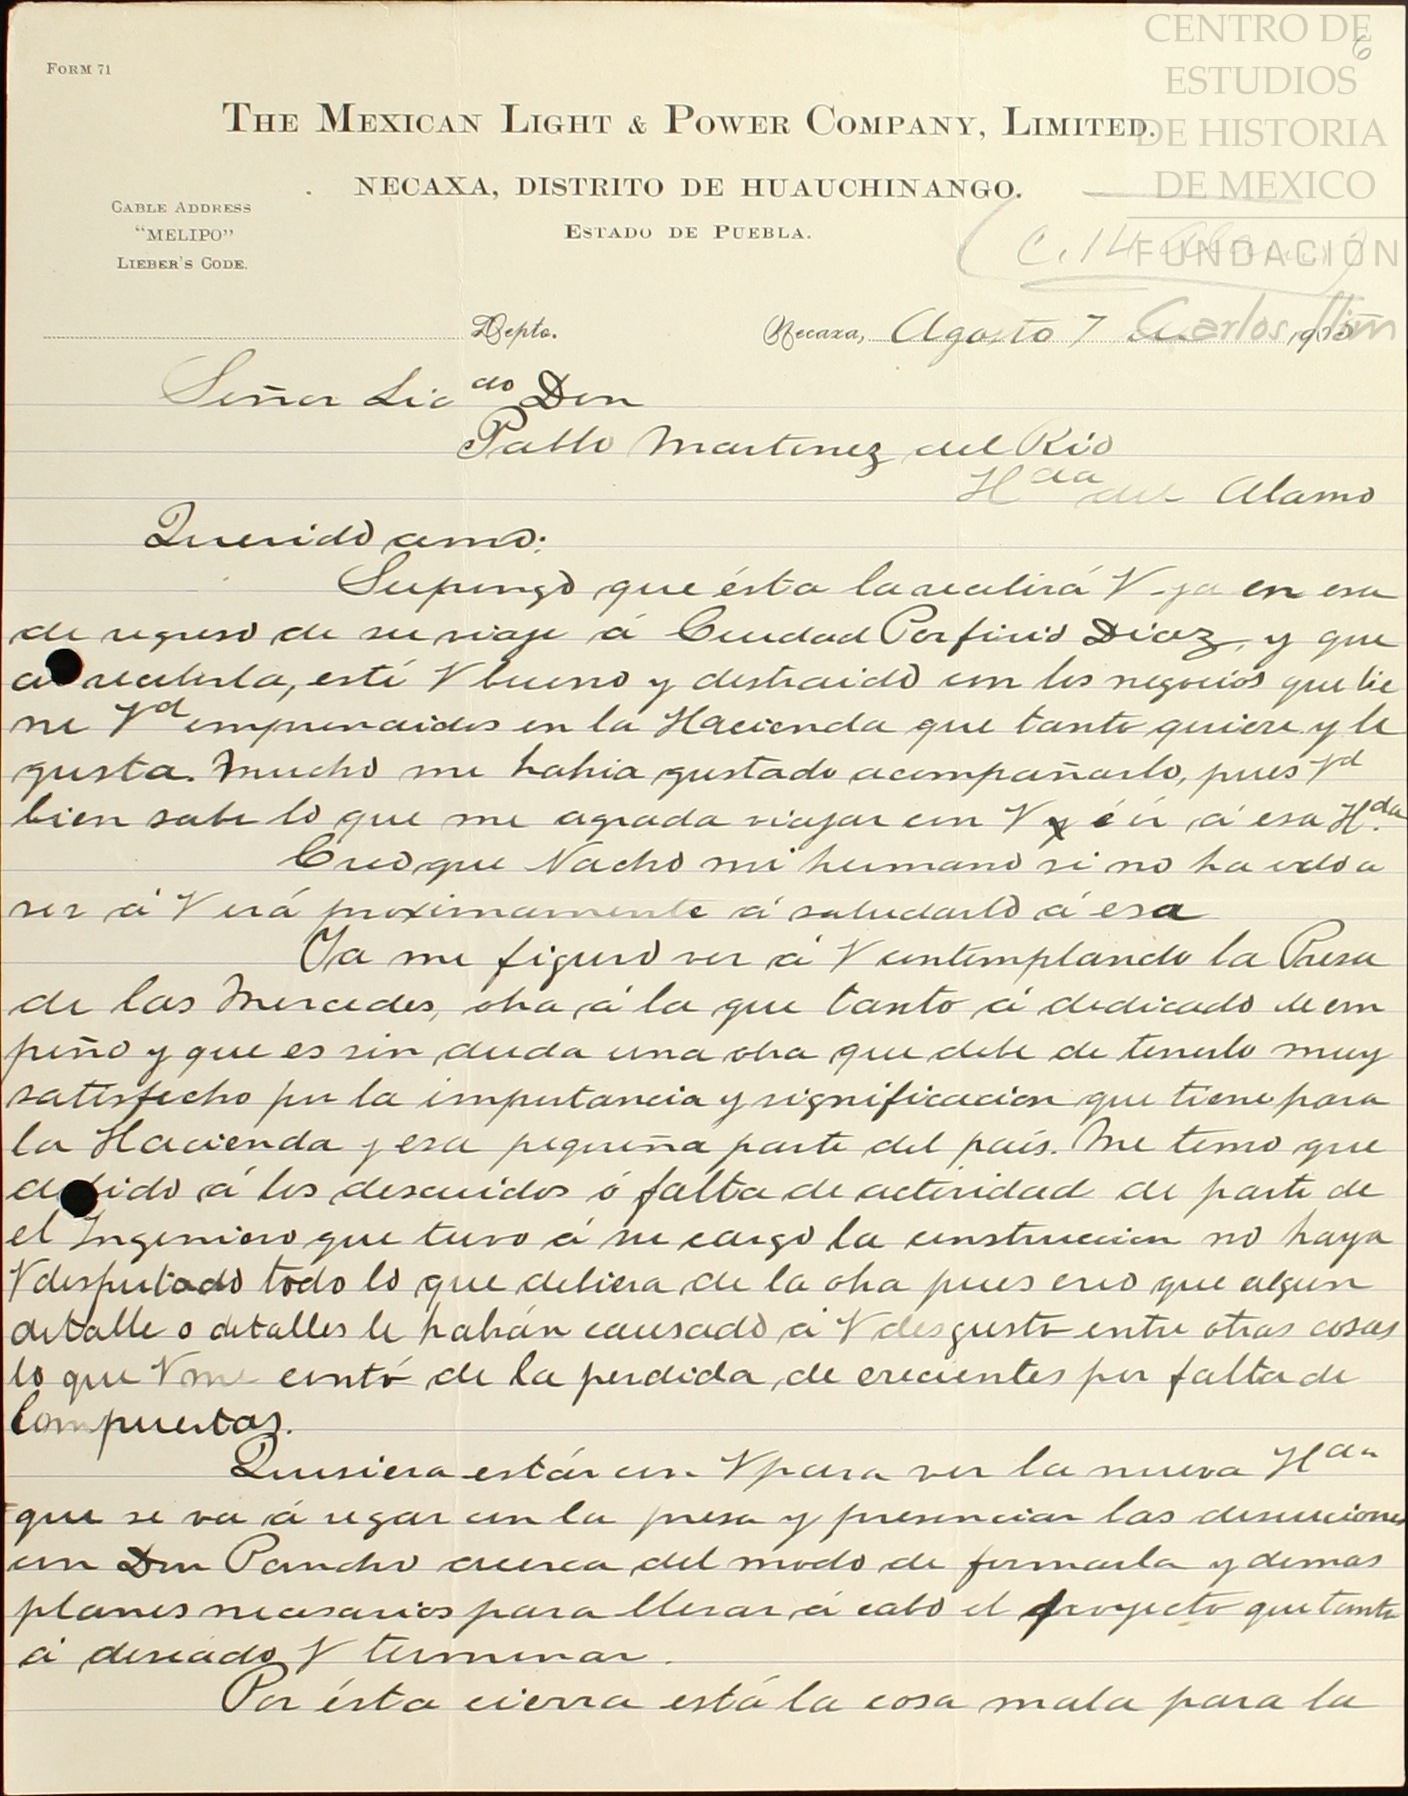 CENTRO DE
ESTUDIOS
DE HISTORIA
DE MEXICO
FUNDACIÓN
Carlos Slim
6
FORM 71
THE MEXICAN LIGHT & POWER COMPANY, LIMITED.
NECAXA, DISTRITO DE HUAUCHINANGO.
ESTADO DE PUEBLA.
CABLE ADDRESS
"MELIPO"
LIEBER'S CODE.
C. 14
Depto. Necaxa, Agosto 7 de
Señor Licdo Don
Pablo Martinez del Rio
Hda del Alamo
Querido amo:
Supongo que ésta la recibirá V. ya en esa
de regreso de su viaje á Ciudad Porfirio Díaz, y que
al recibirla, esté V bueno y distraido con los negocios que tie
ne Vd emprendidos en la Hacienda que tanto quiere y le
gusta. Mucho me habia gustado acompañarlo, pues Vd
bien sabe lo que me agrada viajar con V y é ir á esa Hda
Creo que Nacho mi hermano si no ha ido a
ver á V irá proximamente á saludarlo á esa
Ya me figuro ver á V contemplando la Presa
de las Mercedes, obra á la que tanto á dedicado de em
peño y que es sin duda una obra que debe de tenerlo muy
satisfecho por la importancia y significacion que tiene para
la Hacienda y esa pequeña parte del país. Me temo que
debido á los descuidos ó falta de actividad de parte de
el Ingeniero que tuvo á su cargo la construccion no haya
V desfrutado todo lo que debiera de la obra pues creo que algun
detalle o detalles le habán causado á V desgusto entre otras cosas
lo que V me contó de la perdida de crecientes por falta de
Compuertas.
Quisiera estár con V para ver la nueva Hda
que se va á regar con la presa y presenciar las descuciones
con Don Pancho acerca del modo de formarla y demas
planes necesarios para llevar á cabo el proyecto que tanto
á deseado V terminar.
Por ésta cierra está la cosa mala para la